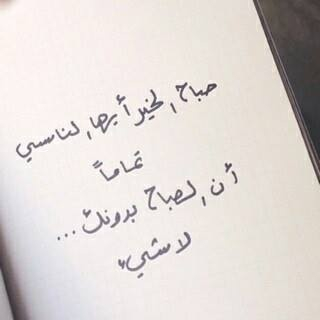 صباح الخير أيها الناسي
تماماً
أن الصباح بدونك ...
لا شيء